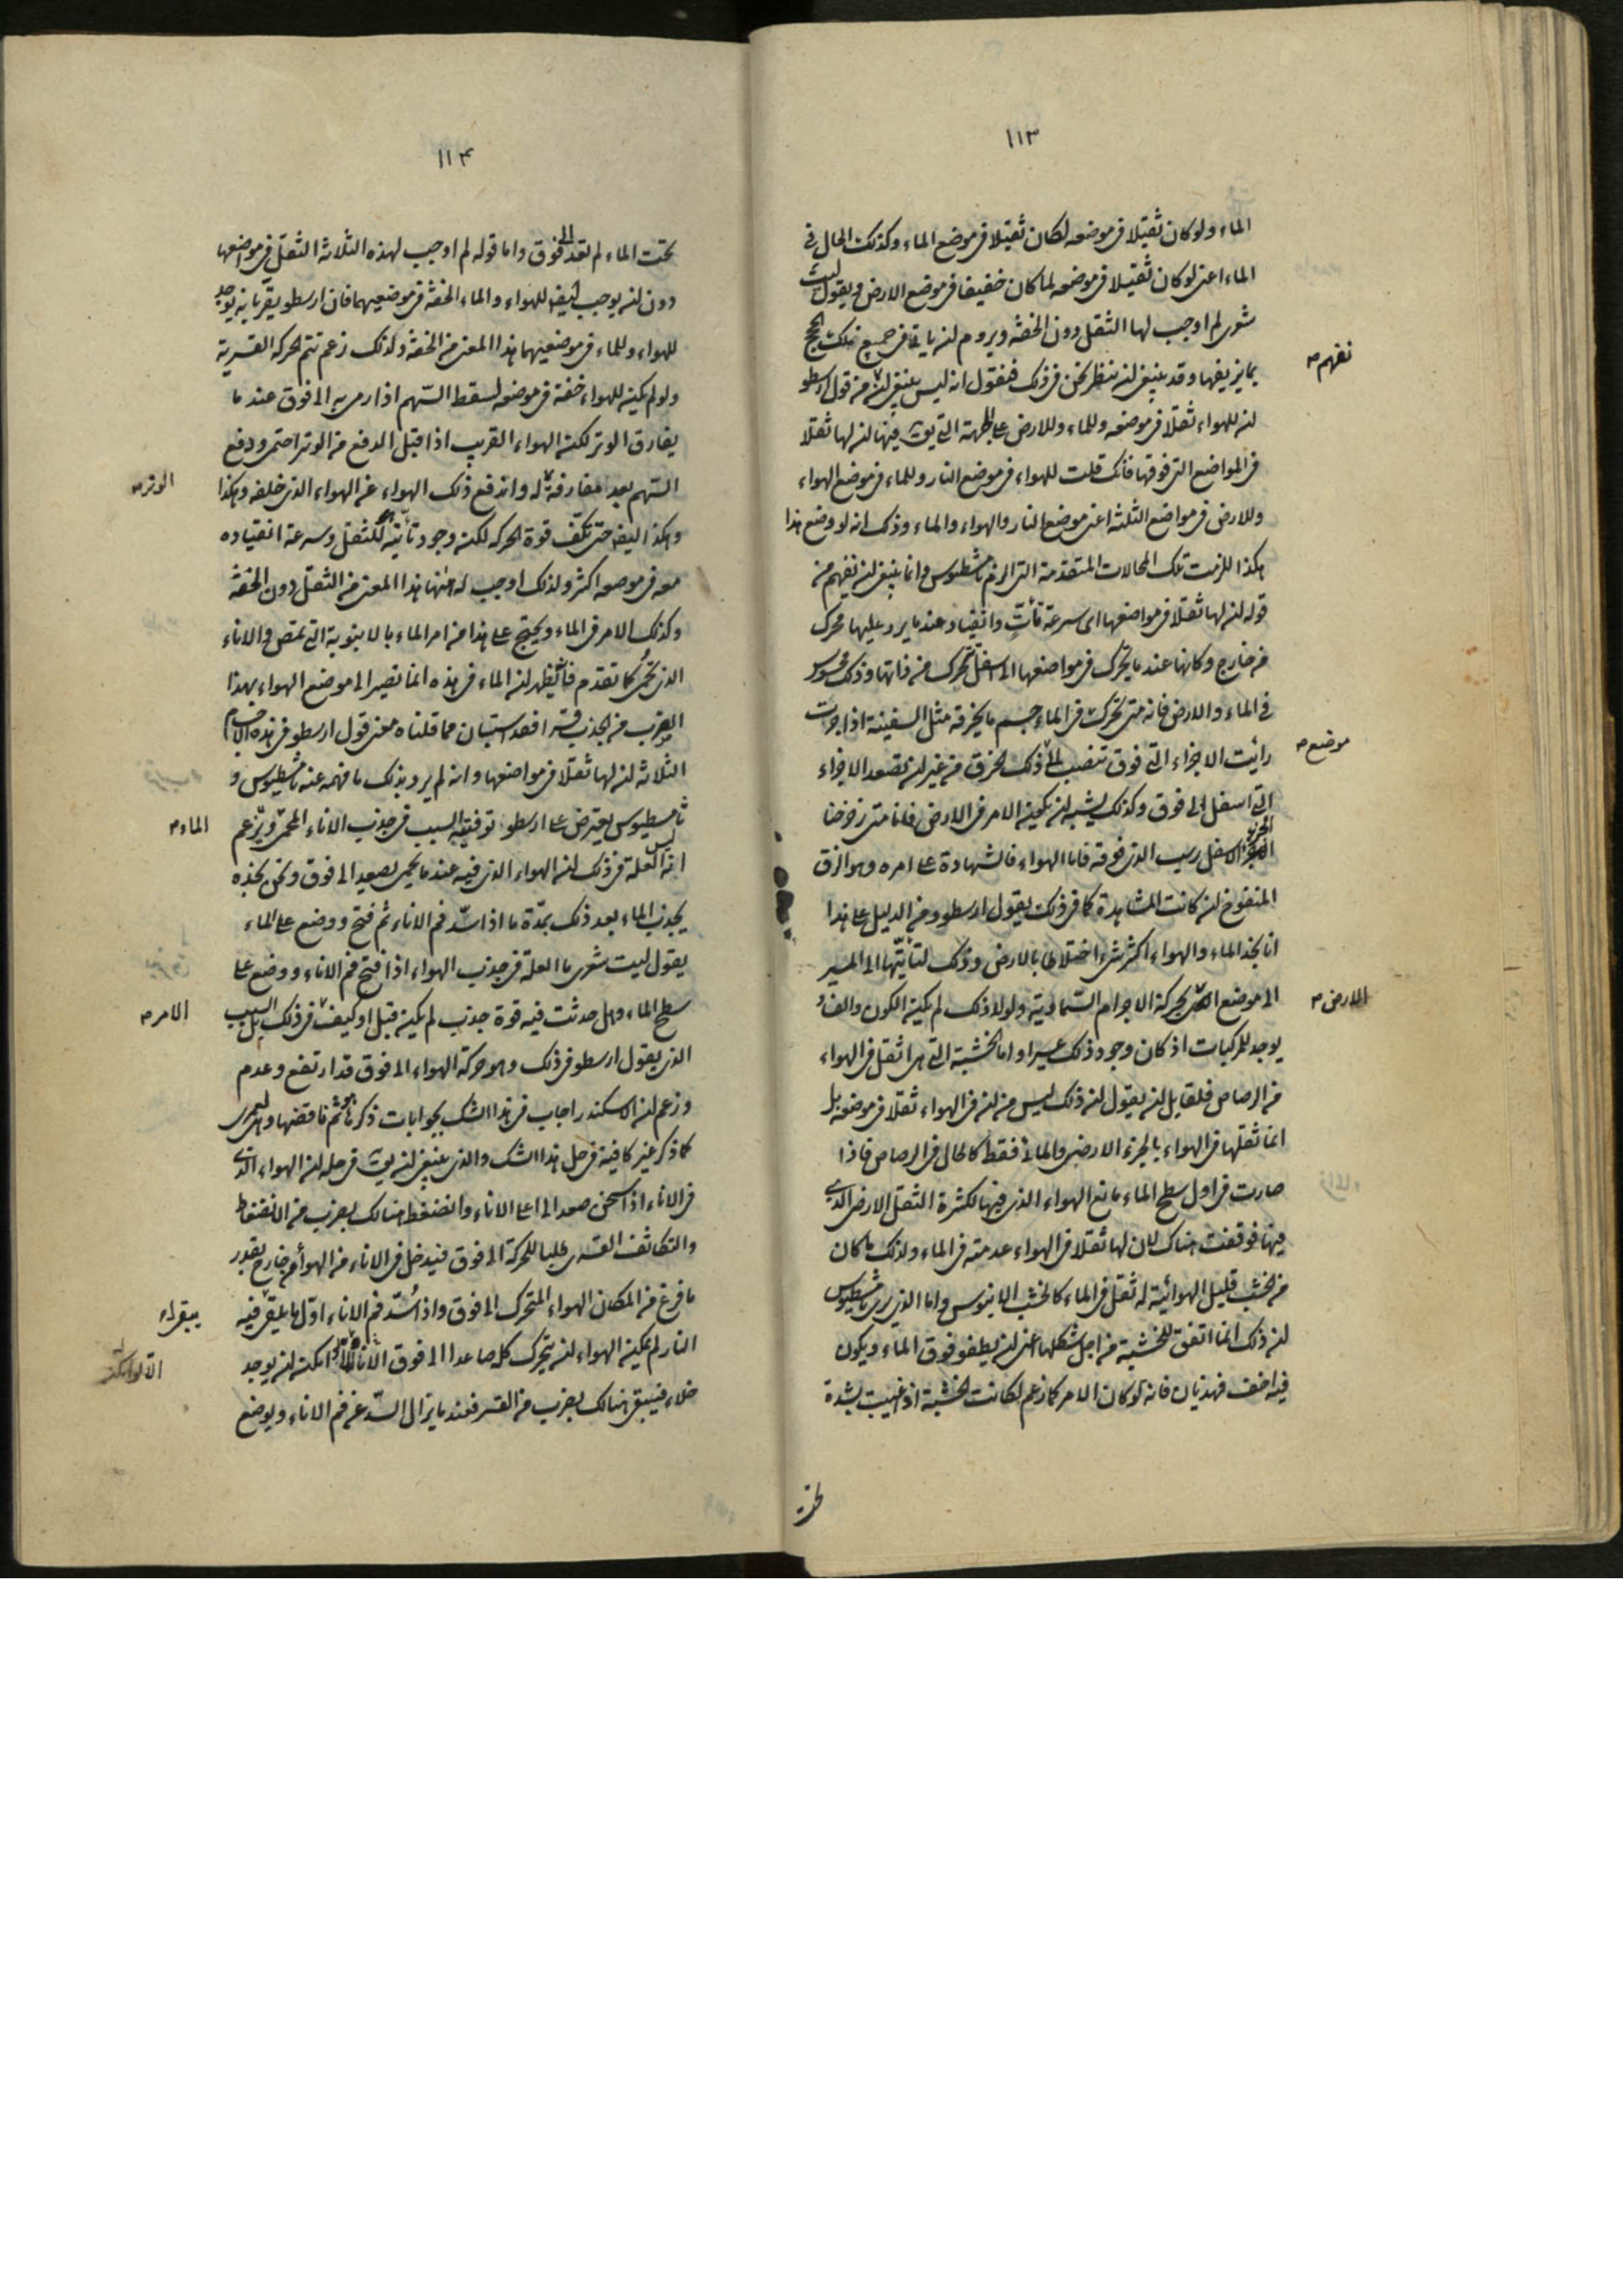 ١١٣
الماء ولو كان ثقيلا فى موضعه لكان ثقيلا فى موضع الماء وكذلك الحال فى
الماء اعنى لو كان ثقيلا فى موضعه لما كان خفيفا فى موضع الارض ويقول ليت
شعرى لم اوجب لها الثقل دون الخفة ويروم ان ياتى فى جميع تلك الحجج
بما يزيفها وقد ينبغى ان ننظر نحن فى ذلك فنقول انه ليس ينبغى ان من قول ارسطو
ان للهواء ثقلا فى موضعه وللماء وللارض على الجهة التى يق فيها ان لها ثقلا
فى المواضع التى فوقها فانك قلت للهواء فى موضع النار وللماء فى موضع الهواء
وللارض فى مواضع الثلثة اعنى موضع النار والهواء والماء وذلك انه لو وضع هذا
هكذا للزمت تلك المحالات المتقدمة التى الزم ثامسطيوس وانما ينبغى ان نفهم من
قوله ان لها ثقلا فى مواضعها اى سرعة تأتٍ وانقياد عند ما يرد عليها محرك
من خارج وكانها عند ما يحرك فى مواضعها الى اسفل تتحرك من ذاتها وذلك محسوس
فى الماء والارض فانه متى تحرك فى الماء جسم ما يخرقه مثل السفينة اذا جرت
رأيت الاجزاء التى فوق تنصب الى ذلك الخرق من غير ان تصعد الاجزاء
التى اسفل الى فوق وكذلك يشبه ان يكون الامر فى الارض فانا متى زحزحنا
الجزء الاسفل رسب الذى فوقه فاما الهواء فالشهادة على امره وهو الزق
المنفوخ ان كانت المشاهدة كما فى ذلك يقول ارسطو ومن الدليل على هذا
انا نجد الماء والهواء اكثر شىء اختلاطا بالارض وذلك لتأتيها الى المسير
الى موضع بحركة الاجرام السماوية ولولا ذلك لم يكن الكون والفساد
يوجد للمركبات اذ كان وجود ذلك عسيرا واما الخشبة التى هى اثقل فى الهواء
من الرصاص فلقايل ان يقول ان ذلك ليس من ان فى الهواء ثقلا فى موضعه بل
انما ثقلها فى الهواء بالجزء الارضى والمائى فقط كالحال فى الرصاص فاذا
صارت فى اول سطح الماء مانع الهواء الذى فيها لكثرة الثقل الارضى الذى
فيها فوقفت هناك لان لها ثقلا فى الهواء عدمته فى الماء ولذلك ما كان
من الخشب قليل الهوائية له ثقل فى الماء كالخشب الابنوس واما الذى يرى ثامسطيوس
ان ذلك انما اتفق للخشبة من اجل شكلها اعنى ان يطفو فوق الماء ويكون
فيه اخف فهذيان فانه لو كان الامر كما زعم لكانت الخشبة اذا غيبت بشدة
نفهم صـ
موضع صـ
الارض صـ
١١٤
تحت الماء لم تعد الى فوق واما قوله لم اوجب لهذه الثلاثة الثقل فى مواضعها
دون ان يوجب ايضا للهواء والماء الخفة فى موضعيهما فان ارسطو يقر بانه يوجد
للهواء وللماء فى موضعيهما هذا المعنى من الخفة ولذلك زعم تتم الحركة القسرية
ولو لم يكن للهواء خفة فى موضعه لسقط السهم اذا رمى به الى فوق عند ما
يفارق الوتر لكن الهواء القريب اذا قبل الدفع من الوتر احتمى ودفع
السهم بعد مفارقة له واندفع ذلك الهواء عن الهواء الذى خلفه وهكذا
وهكذا ايضا حتى تكف قوة الحركة لكن وجود تأتيه للثقل وسرعة انقياده
معه فى موضعه اكثر ولذلك اوجب له هاهنا هذا المعنى من الثقل دون الخفة
وكذلك الامر فى الماء ويحتج على هذا من امر الماء بالانبوبة التى تمتص والاناء
الذى تحمى كما تقدم فانه يظهر ان الماء فى هذه انما نصير الى موضع الهواء بهذا
الضرب من الجذب قسرا فقد استبان مما قلناه معنى قول ارسطو فى هذه الاجسام
الثلاثة ان لها ثقلا فى مواضعها وانه لم يرد بذلك ما فهمه عنه ثامسطيوس و
ثامسطيوس يعترض على ارسطو توفيقه السبب فى جذب الاناء المحمى ويزعم
انه ليس العلة فى ذلك ان الهواء الذى فيه عند ما يحمى يصعد الى فوق ونحن نجده
يجذب الماء بعد ذلك بمدة ما اذا سد فم الاناء ثم فتح ووضع على الماء
يقول ليت شعرى ما العلة فى جذب الهواء اذا فتح فم الاناء ووضع على
سطح الماء وهل حدثت فيه قوة جذب لم يكن قبل او كيف فى ذلك بل السبب
الذى يقول ارسطو فى ذلك وهو حركة الهواء الى فوق قد ارتفع وعدم
وزعم ان الاسكندر اجاب فى هذا الشك بجوابات ذكرها هو ثم ناقضها وهى لعمرى
كما ذكر غير كافية فى حل هذا الشك والذى ينبغى ان يق فى حله ان الهواء الذى
فى الاناء اذا سخن صعد الى اعلى الاناء وانضغط هنالك بضرب من الانضغاط
والتكاثف القسرى طلبا للحركة الى فوق فيدخل فى الاناء من الهواء من خارج بقدر
ما فرغ من المكان الهواء المتحرك الى فوق واذا سد فم الاناء اول ما يلقى فيه
النار لم يمكن الهواء ان يتحرك كل صاعدا الى فوق الاناء امكن ان يوجد
خلاء فيبقى هنالك بضرب من القسر فعند ما يزال السد عن فم الاناء ويوضع
الوتر صـ
الماء صـ
الامر صـ